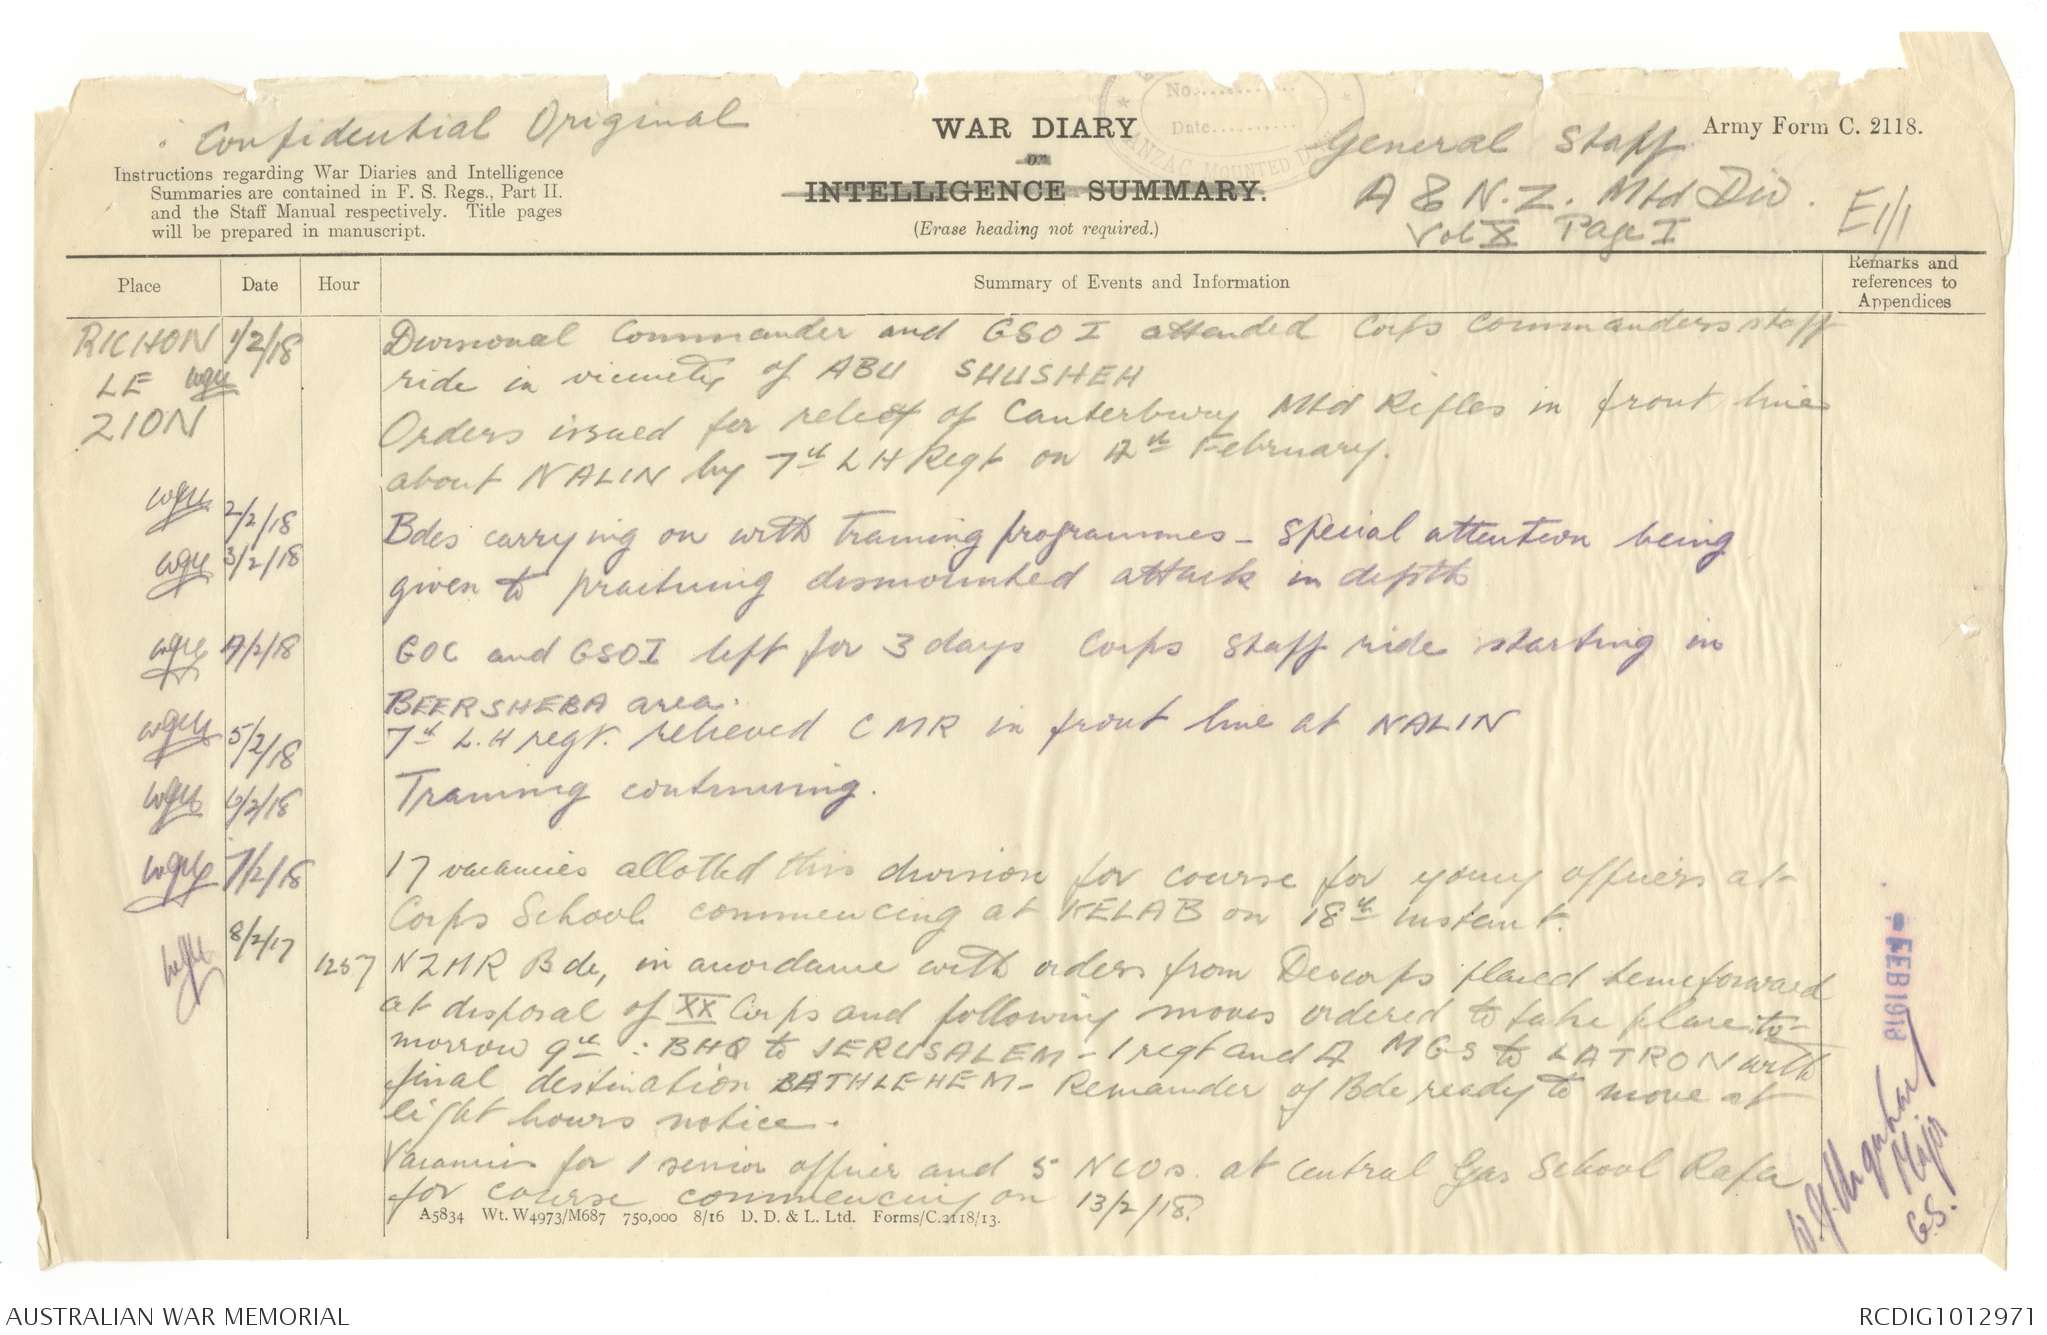 Confidential Original
WAR DIARY
or
INTELLIGENCE SUMMARY.
(Erase heading not required.)
No............
Date............
ANZAC MOUNTED
General Staff
A & N.Z. Mtd Div.
Vol X Page I
Army Form C. 2118.
E1/1
Instructions regarding War Diaries and Intelligence
Summaries are contained in F. S. Regs., Part II.
and the Staff Manual respectively. Title pages
will be prepared in manuscript.
Place Date Hour Summary of Events and Information Remarks and
references to
Appendices
RICHON 1/2/18 Divisional Commander and GSO I attended Corps Commanders staff
LE ride in vicinity of ABU SHUSHEH
ZION Orders issued for relief of Canterbury Mtd Rifles in front line
about NALIN by 7th LH Regt on 4th February.
2/2/18 Bdes carrying on with training programmes - special attention being
3/2/18 given to practising dismounted attack in depth
4/2/18 GOC and GSOI left for 3 days Corps Staff ride starting in
BEERSHEBA area.
5/2/18 7th L.H regt. relieved CMR in front line at NALIN
6/2/18 Training continuing.
7/2/18 17 vacancies allotted this division for course for young officers at
Corps School commencing at KELAB on 18th instant.
8/2/17 1257 NZMR Bde, in accordance with orders from Descorps placed henceforward
at disposal of XX Corps and following moves ordered to take place to-
morrow 9th : BHQ to JERUSALEM - 1 regt and 4 MGS to LATRON with
final destination BATHLEHEM - Remainder of Bde ready to move at
eight hours notice.
Vacancies for 1 senior officer and 5 NCOs. at Central Gas School Rafa
for course commencing on 13/2/18.
A5834 Wt. W4973/M687 750,000 8/16 D. D. & L. Ltd. Forms/C.2118/13.
FEB 1918
Major
G.S.
AUSTRALIAN WAR MEMORIAL
RCDIG1012971